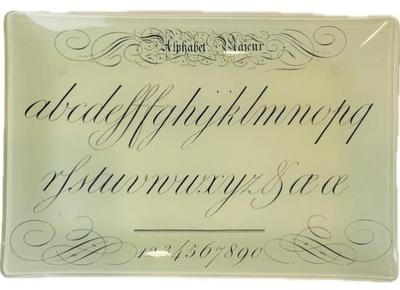 Alphabet Majeur
abcdefffghijklmnopq
rſstuvwuxyz&æœ
1234567890